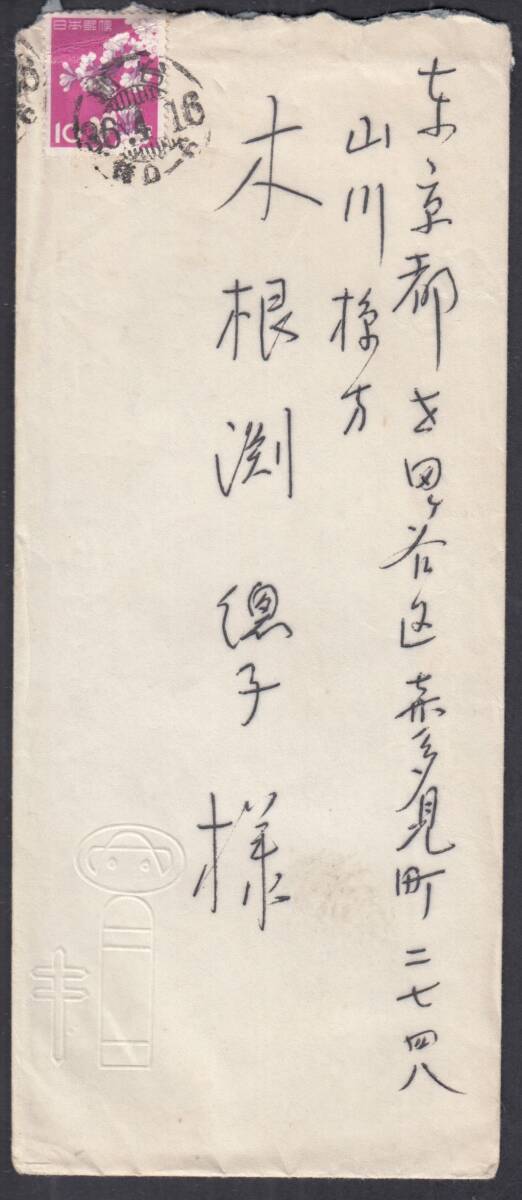 東京都世田ヶ谷区喜多見町二七四八
山川様方
木根渕總子様
日本郵便
10
36.4.16